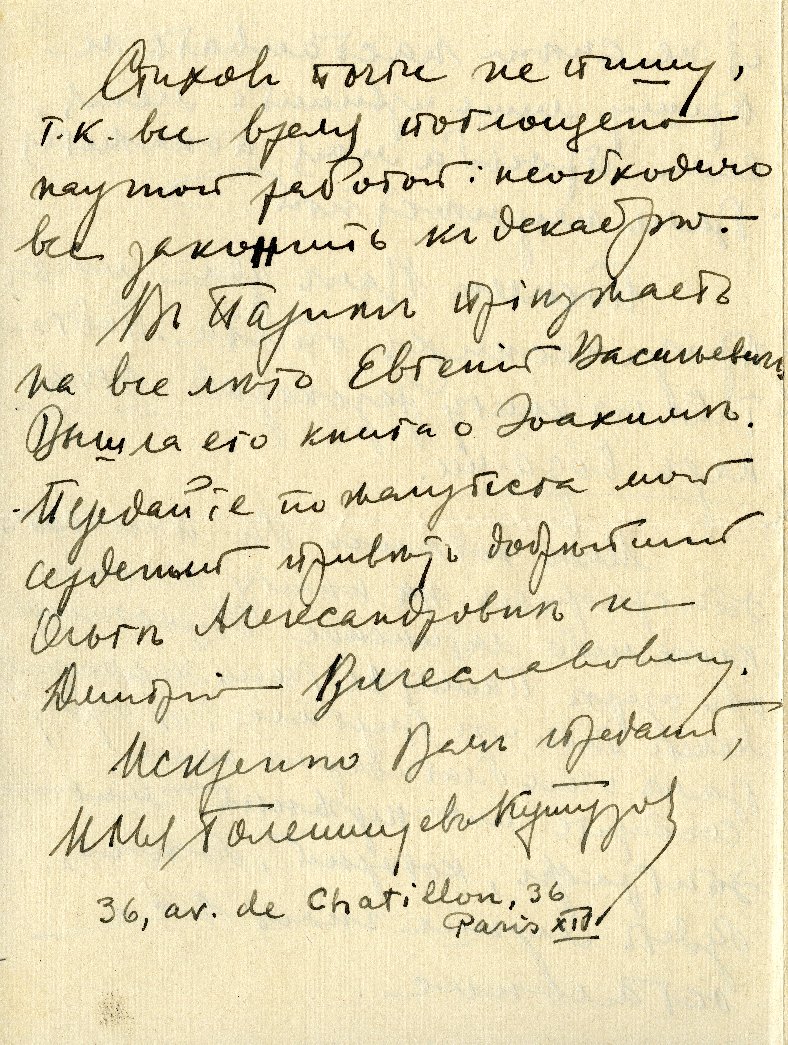 Стиховъ почти не пишу,
т.к. все время поглощено
научной работой: необходимо
все закончить къ декабрю.
Въ Парижъ пріѣзжаетъ
на все лѣто Евгеній Васильевичъ.
Вышла его книга о Іоакимѣ.
Передайте пожалуйста мой
сердечный привѣтъ добрѣйшей
Ольгѣ Александровнѣ и
Димитрію Вячеславовичу.
Искренно Вамъ преданный,
И Голенищевъ Кутузовъ
36, av. de Chatillon, 36
Paris XIV